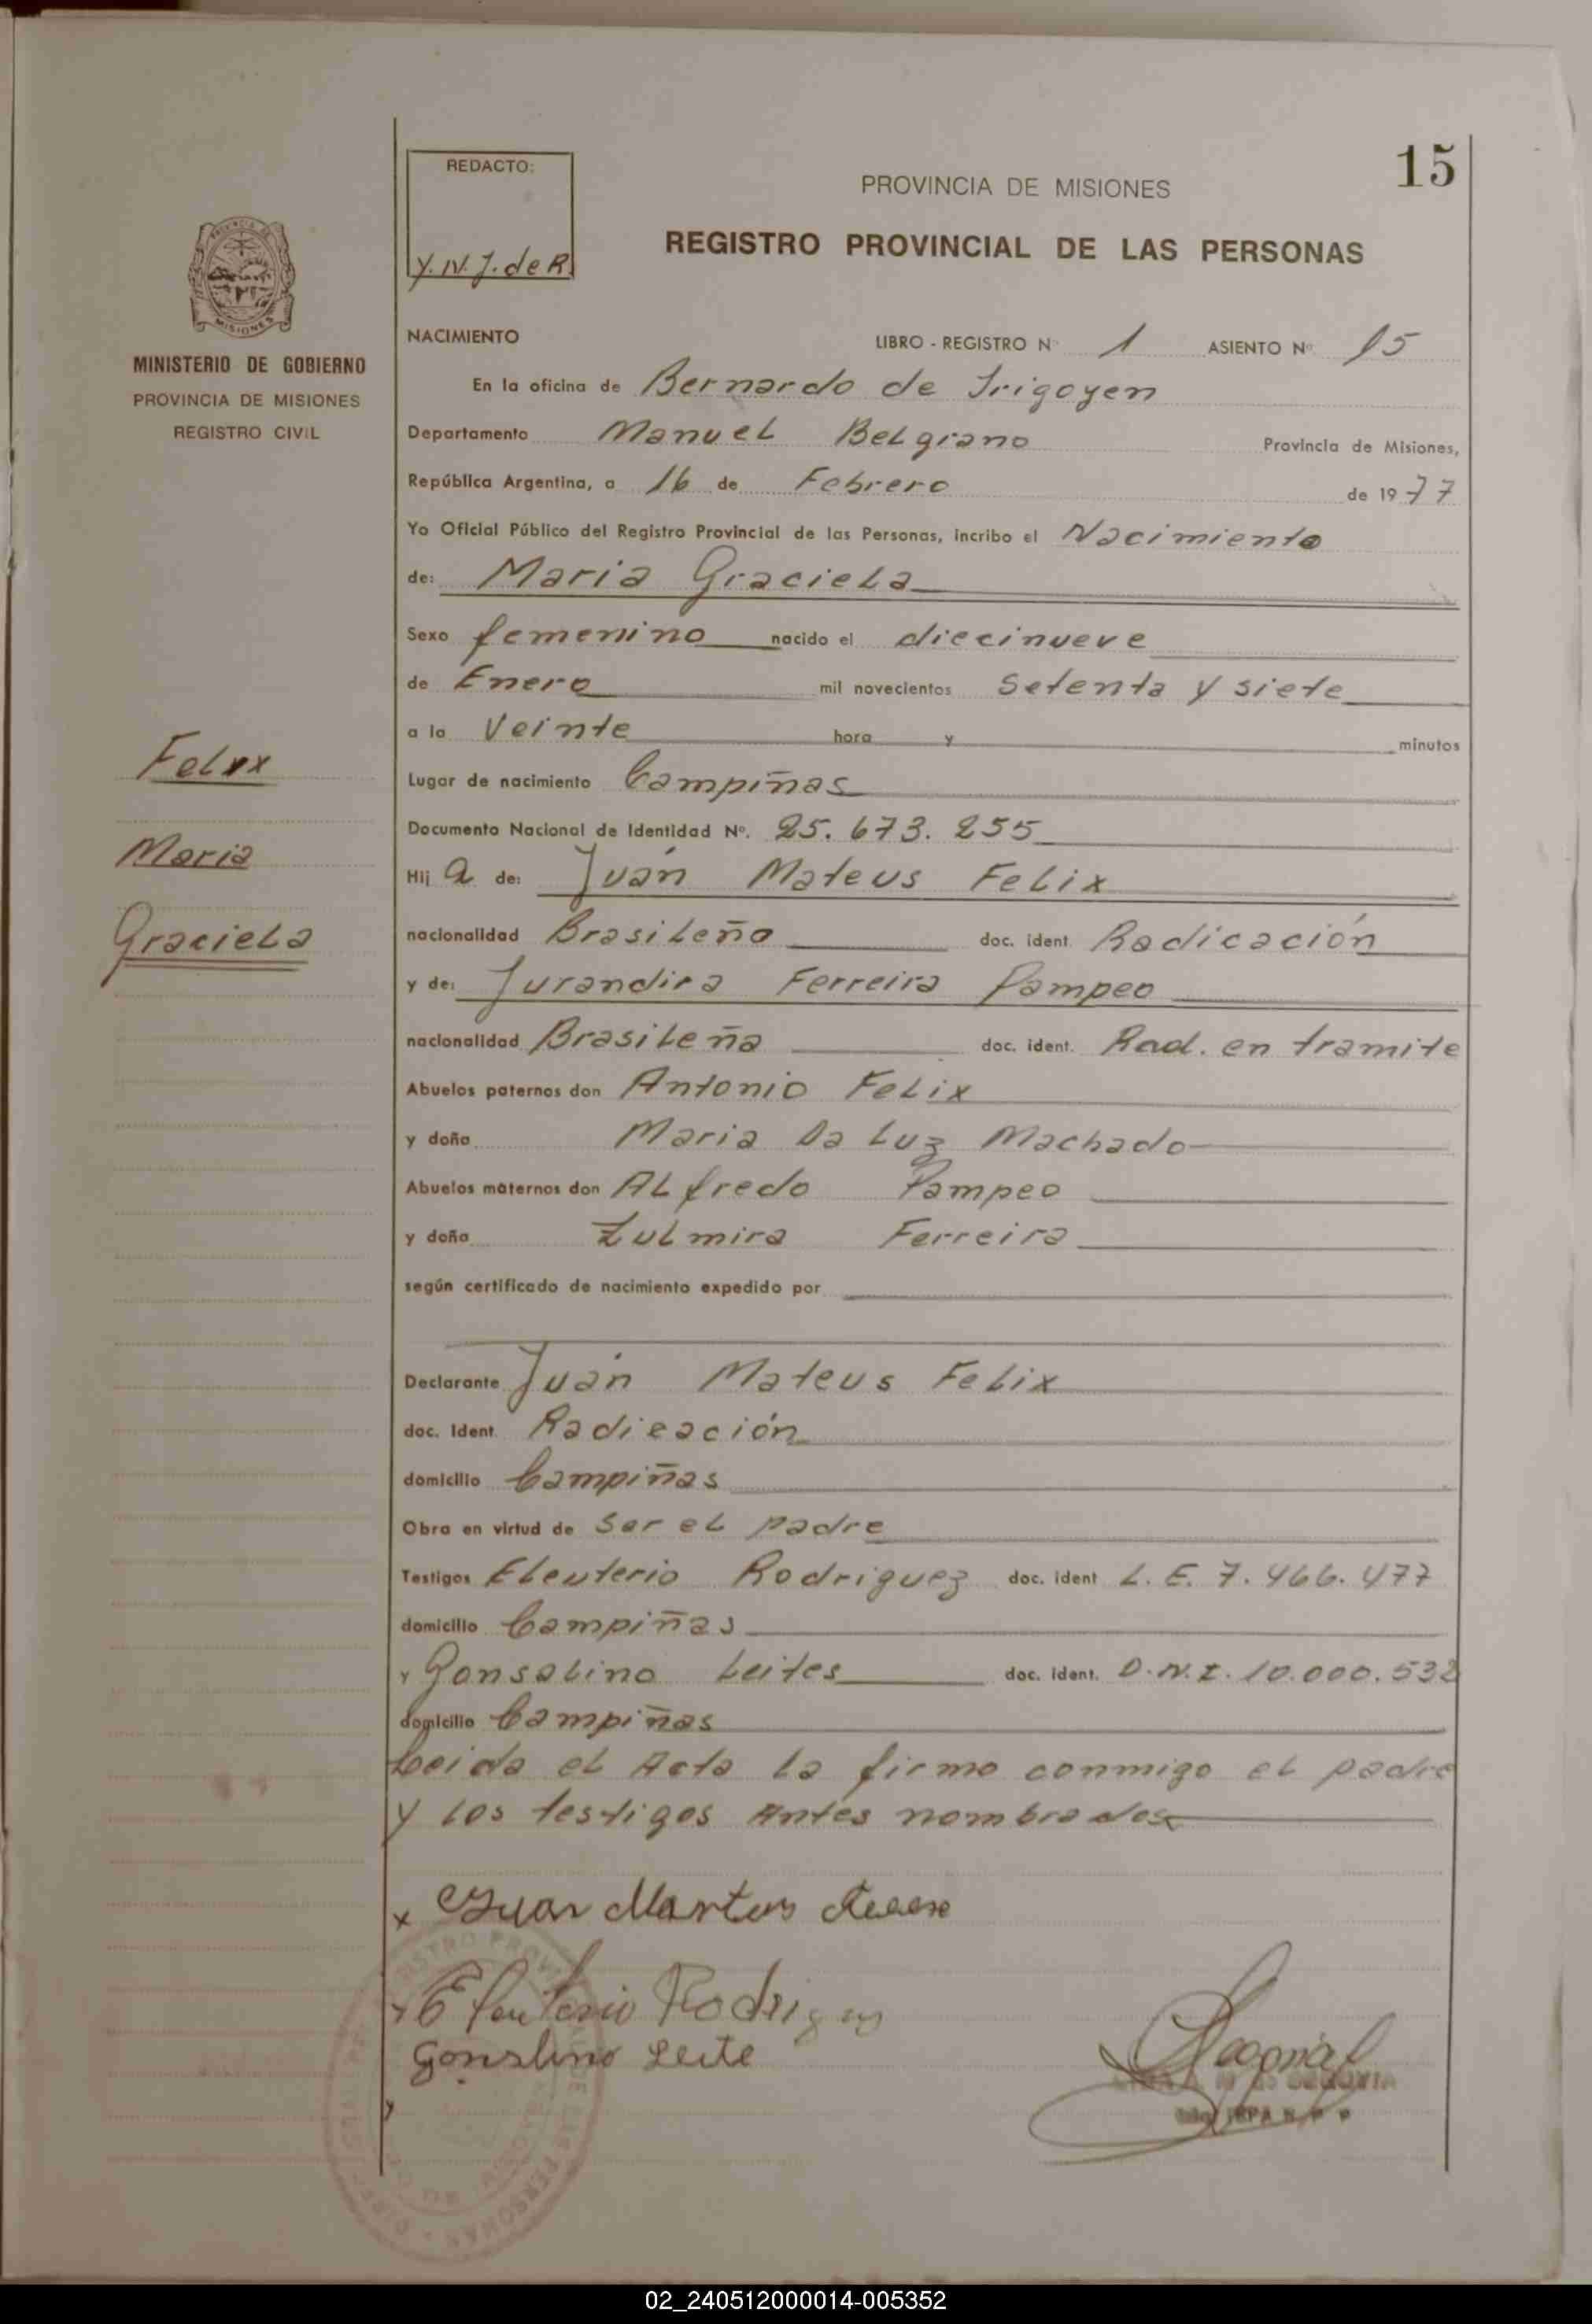 15
REDACTO:
Y.N.J. de R.
PROVINCIA DE MISIONES
REGISTRO PROVINCIAL DE LAS PERSONAS
MISIONES
MINISTERIO DE GOBIERNO
PROVINCIA DE MISIONES
REGISTRO CIVIL
NACIMIENTO LIBRO - REGISTRO Nº 1 ASIENTO Nº 15
En la oficina de Bernardo de Irigoyen
Departamento Manuel Belgrano Provincia de Misiones,
República Argentina, a 16 de Febrero de 1977
Yo Oficial Público del Registro Provincial de las Personas, incribo el Nacimiento
de: Maria Graciela
Sexo femenino nacido el diecinueve
de Enero mil novecientos Setenta y siete
a la Veinte hora y minutos
Felix
Maria
Graciela
Lugar de nacimiento Campiñas
Documento Nacional de Identidad Nº. 25.673.255
Hij a de: Juán Mateus Felix
nacionalidad Brasileño doc. ident. Radicación
y de: Jurandira Ferreira Pampeo
nacionalidad Brasileña doc. ident. Rad. en tramite
Abuelos paternos don Antonio Felix
y doña Maria Da Luz Machado
Abuelos maternos don Alfredo Pampeo
y doña Zulmira Ferreira
según certificado de nacimiento expedido por
Declarante Juán Mateus Felix
doc. Ident. Radicación
domicilio Campiñas
Obra en virtud de Ser el padre
Testigos Eleuterio Rodriguez doc. ident L.E. 7.466.477
domicilio Campiñas
y Gonsalino Leites doc. ident. D.N.I. 10.000.532
domicilio Campiñas
Leida el Acta la firma conmigo el padre
y los testigos Antes nombrados
x Juan Martus
Eleuterio Rodrigues
Gonslino Leite
SEGOVIA
02_240512000014-005352